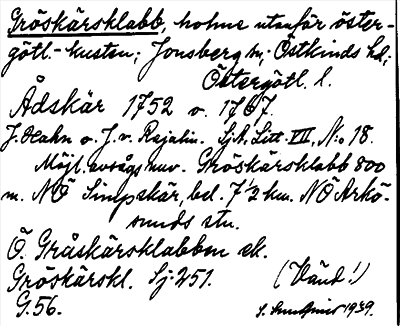 Gröskärsklabb, holme utanför öster-
götl.-kusten; Jonsberg sn; Östkinds hd;
Östergötl. l.
Ådskär 1752 o. 1767.
J. Hahn o. J. v. Rajalin. Sj.k. Litt. VII, N:o 18.
Möjl. avsågs nuv. Gröskärsklabb 800
m. NÖ Simpskär, bel. 7 1/2 km. NÖ Arkö-
sunds stn.
Ö. Gråskärsklabben ek.
Gröskärskl. Sj: 251. (Vänd!)
G. 56. 1939.